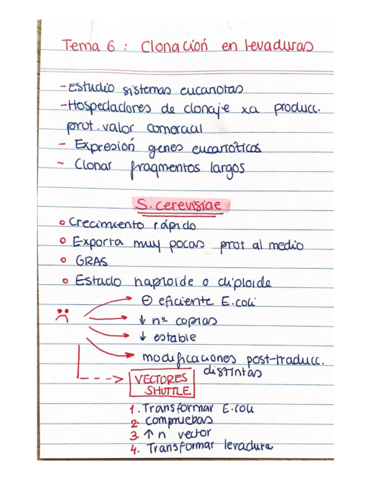 Tema 6 : Clonación en levaduras
- Estudio sistemas eucariotas
- Hospedadores de clonaje xa producc.
prot. valor comercial
- Expresión genes eucarióticos
- Clonar fragmentos largos
S. cerevisiae
o Crecimiento rápido
o Exporta muy pocas prot al medio
o GRAS
o Estado haploide o diploide
⊖ eficiente E. coli
↓ nº copias
↓ estable
modificaciones post-traducc.
distintas
VECTORES
SHUTTLE
1. Transformar E. coli
2. compruebas
3. ↑ n vector
4. Transformar levadura